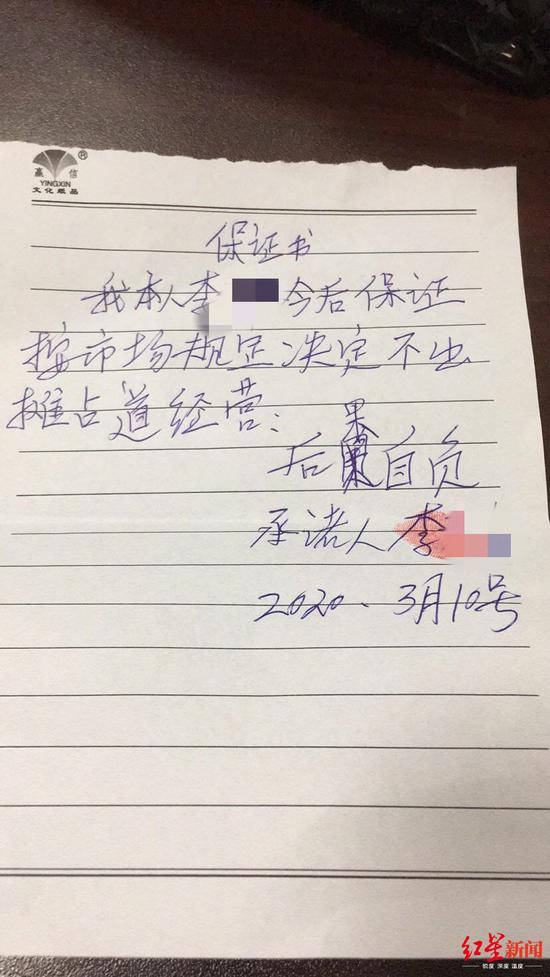 赢信®
YINGXIN
文化纸品
保证书
我本人李 今后保证
按市场规定决定不出
摊占道经营；
后果自负
承诺人李
2020、3月10号
红星新闻
锐度 深度 温度